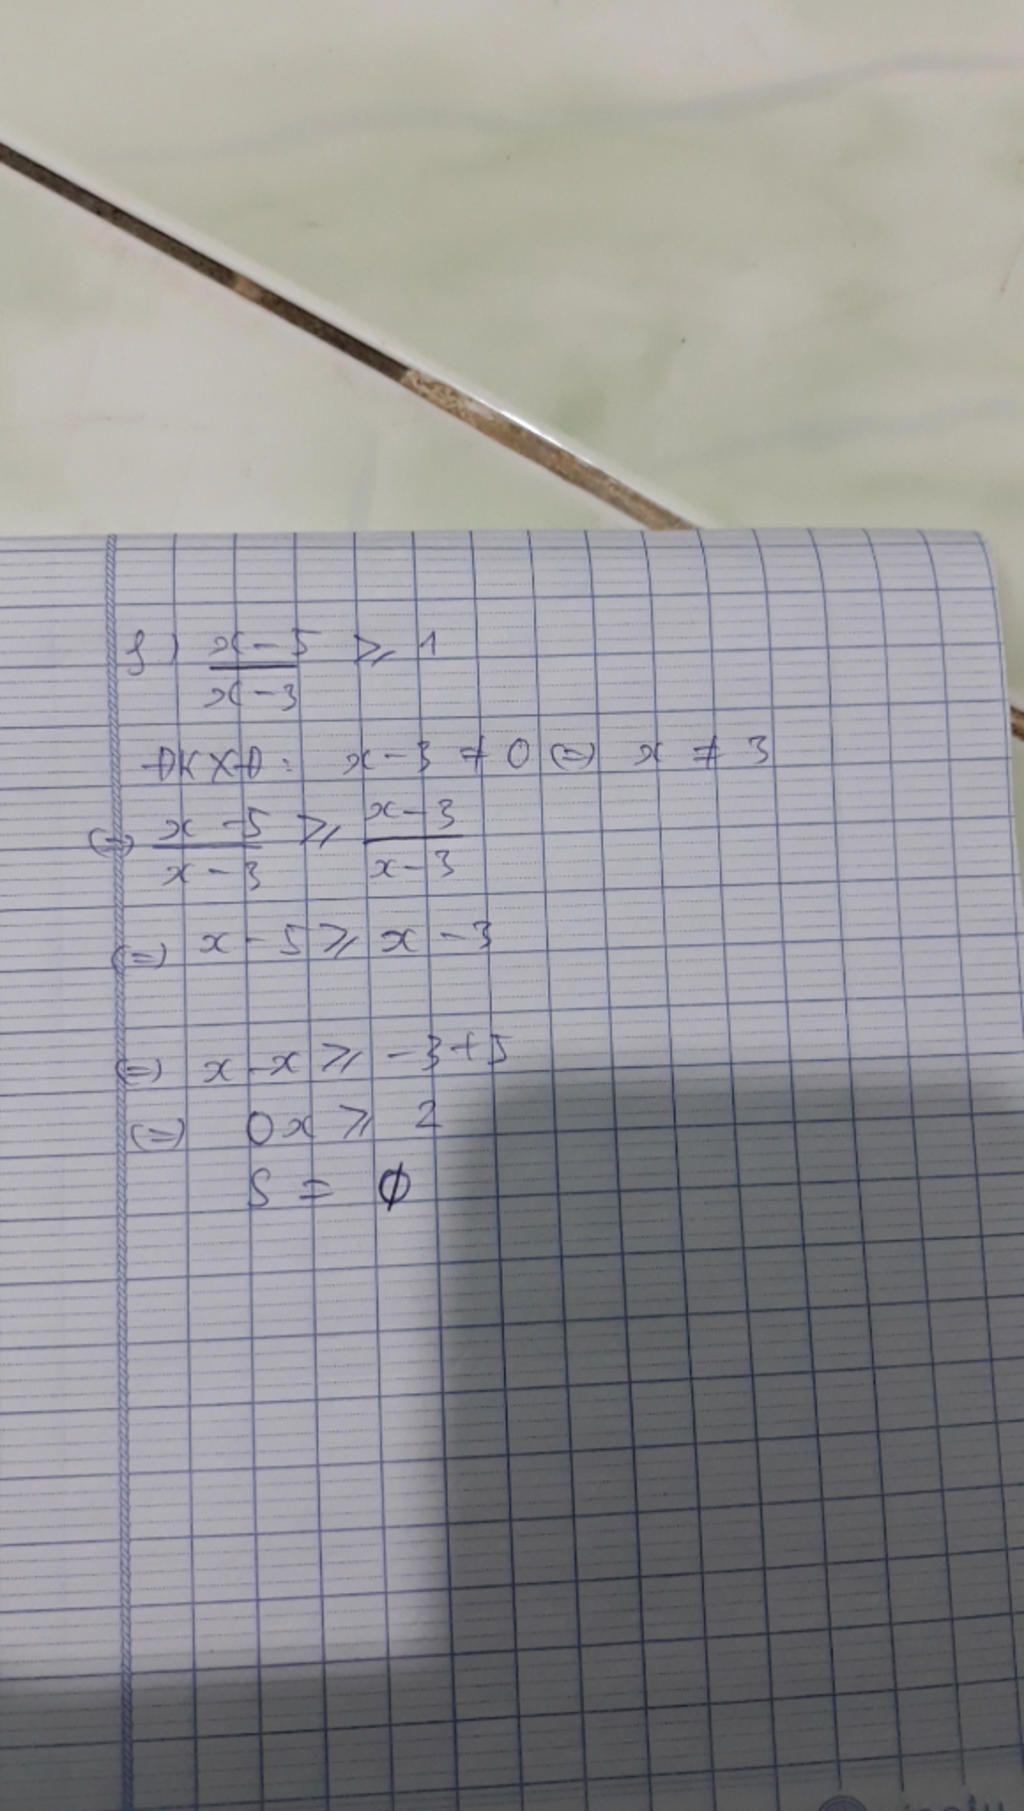 f) x-5/x-3 ⩾ 1
ĐKXĐ: x-3 ≠ 0 (=) x ≠ 3
(=) x-5/x-3 ⩾ x-3/x-3
(=) x-5 ⩾ x-3
(=) x-x ⩾ -3+5
(=) 0x ⩾ 2
S = ∅